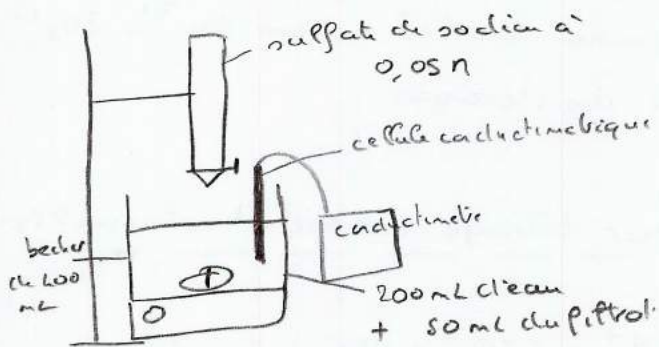 sulfate de sodium à
0,05 M
cellule conductimétrique
conductimètre
becher
de 400
mL
200 mL d'eau
+ 50 mL du filtrat